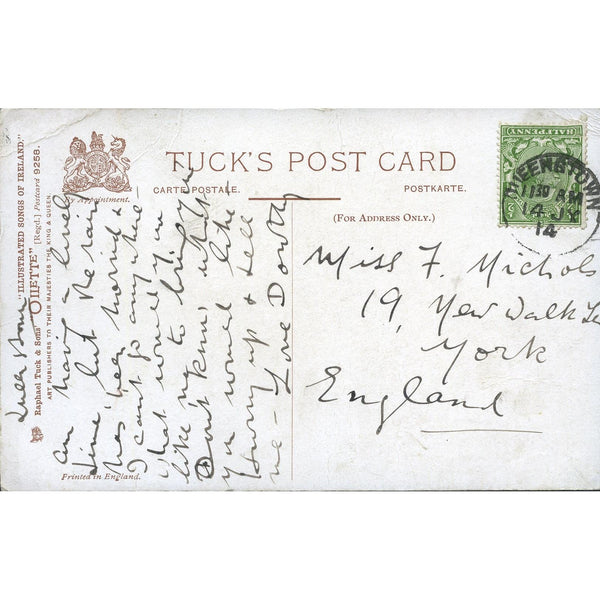 "ILLUSTRATED SONGS OF IRELAND."
Raphael Tuck & Sons' "OILETTE" [Regd.] Postcard 9258.
ART PUBLISHERS TO THEIR MAJESTIES THE KING & QUEEN
By Appointment.
TUCK'S POST CARD
CARTE POSTALE.
POSTKARTE.
(FOR ADDRESS ONLY.)
HALFPENNY
QUEENSTOWN
11 30 AM
4 JY
14
am having a lively
time, but the rain
has been horrid &
I can't go anywhere
What would you
like me to bring you
Don't know what
you would like
Hurry up & tell
me - Love Dorothy
Miss F. Nichols
19, New Walk
York
England
Printed in England.